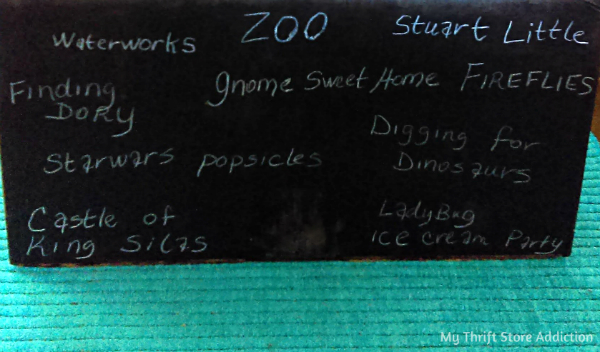 Waterworks
ZOO
Stuart Little
Finding
Dory
gnome Sweet Home
FIREFLIES
Digging for
Dinosaurs
Starwars popsicles
Castle of
King Silas
LadyBug
ice cream Party
My Thrift Store Addiction